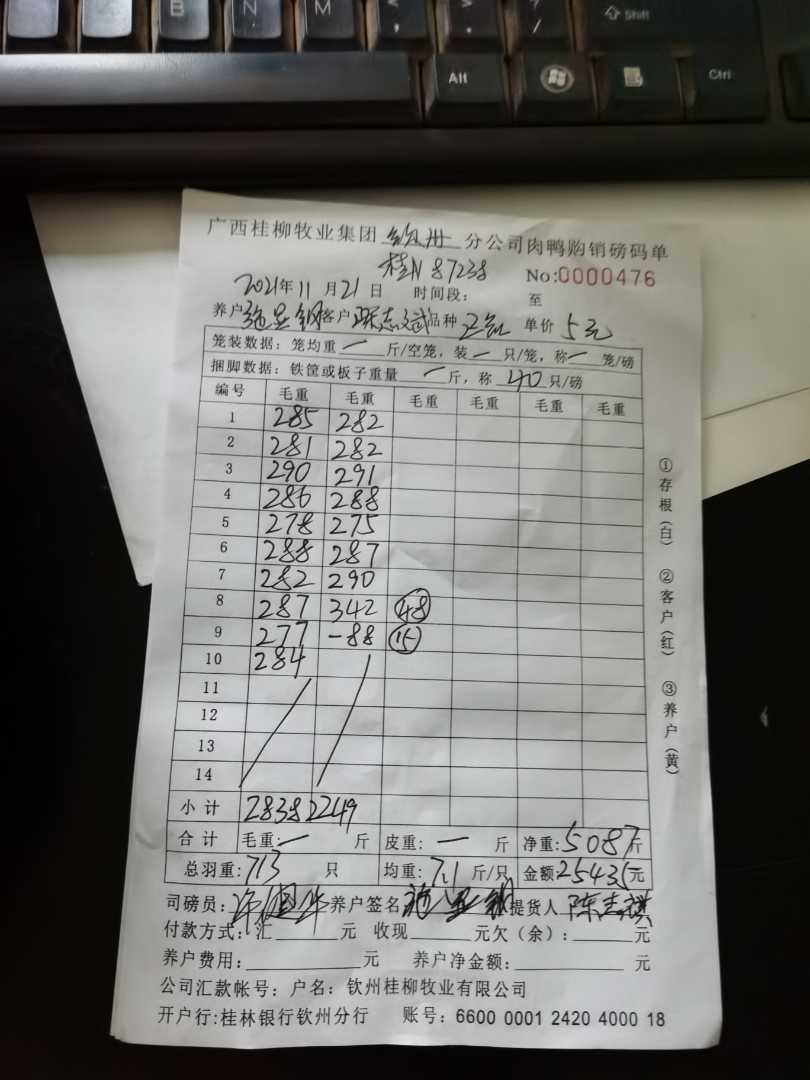 B N M < , > . ? / ⇧ Shift
Alt Ctrl
广西桂柳牧业集团 钦州 分公司肉鸭购销磅码单
桂N 87238 No:0000476
2021年11月21日 时间段: 至
养户 施显钢 客户 陈志斌 品种 单价 5元
笼装数据: 笼均重 一 斤/空笼, 装 一 只/笼, 称 一 笼/磅
捆脚数据: 铁筐或板子重量 一 斤, 称 40 只/磅
编号 毛重 毛重 毛重 毛重 毛重 毛重
1 285 282
2 281 282
3 290 291
4 286 288
5 278 275
6 288 287
7 282 290
8 287 342 48
9 277 -88 15
10 284
11
12
13
14
小计 2838 2249
合计 毛重: 一 斤 皮重: 一 斤 净重: 5087斤
总羽重: 713 只 均重: 7.1 斤/只 金额 25435元
司磅员: 养户签名 提货人
付款方式: 汇 元 收现 元欠(余): 元
养户费用: 元 养户净金额: 元
公司汇款帐号: 户名: 钦州桂柳牧业有限公司
开户行:桂林银行钦州分行 账号: 6600 0001 2420 4000 18
①存根(白) ②客户(红) ③养户(黄)